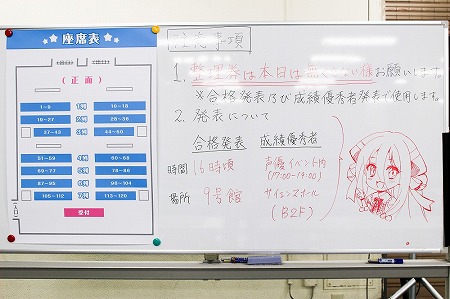 座席表
(正面)
1~9 1列 10~18
19~27 2列 28~36
37~43 3列 44~50
51~59 4列 60~68
69~77 5列 78~86
87~95 6列 96~104
105~112 7列 113~120
入口
受付
注意事項
1. 整理券は本日は無くさない様お願いします。
※合格発表及び成績優秀者発表で使用します。
2. 発表について
合格発表 成績優秀者
時間 16時頃 声優イベント内
(17:00~19:00)
場所 9号館 サイエンスホール
(B2F)